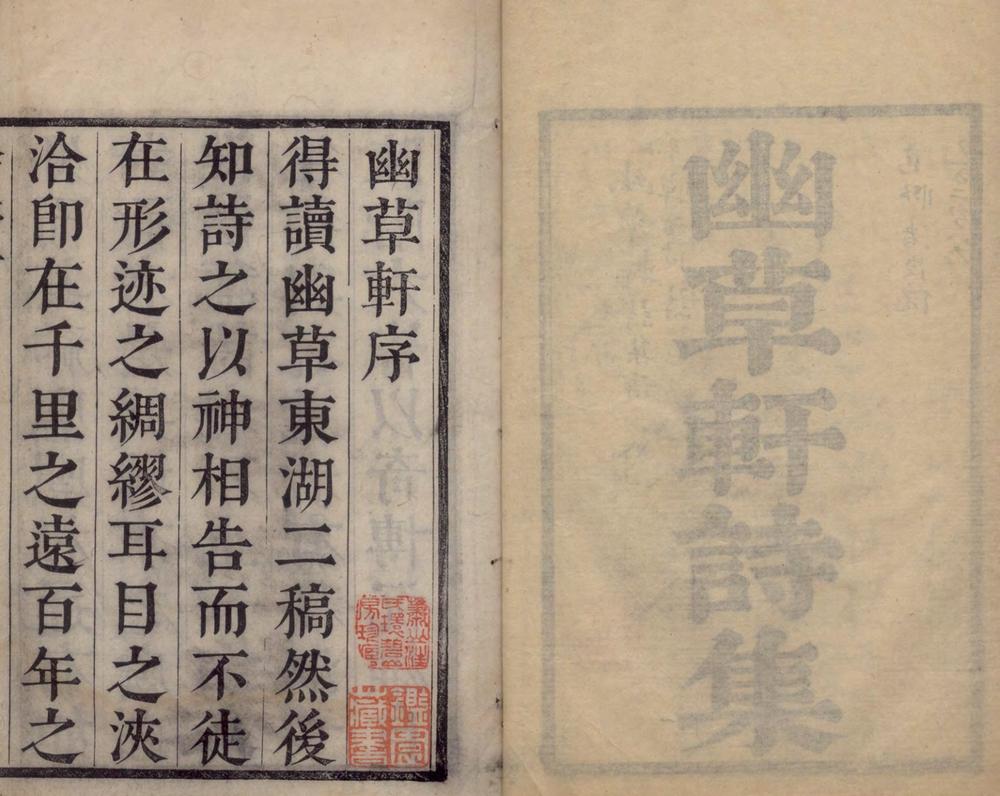 幽草軒詩集
幽草軒序
得讀幽草東湖二稿然後
知詩之以神相告而不徒
在形迹之綢繆耳目之浹
洽卽在千里之遠百年之